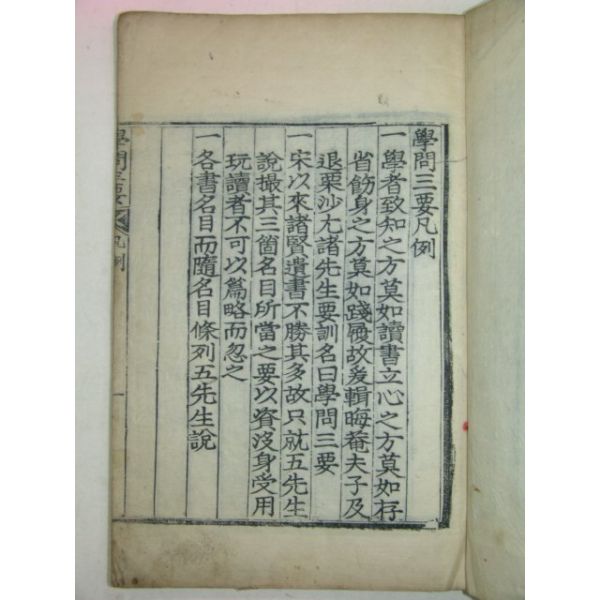 學問三要凡例
一 學者致知之方莫如讀書立心之方莫如存
省飭身之方莫如踐履故爰輯晦菴夫子及
退栗沙尤諸先生要訓名曰學問三要
一 宋以來諸賢遺書不勝其多故只就五先生
說撮其三箇名目所當之要以資沒身受用
玩讀者不可以篇略而忽之
一 各書名目而隨名目條列五先生說
學問三要 凡例 一